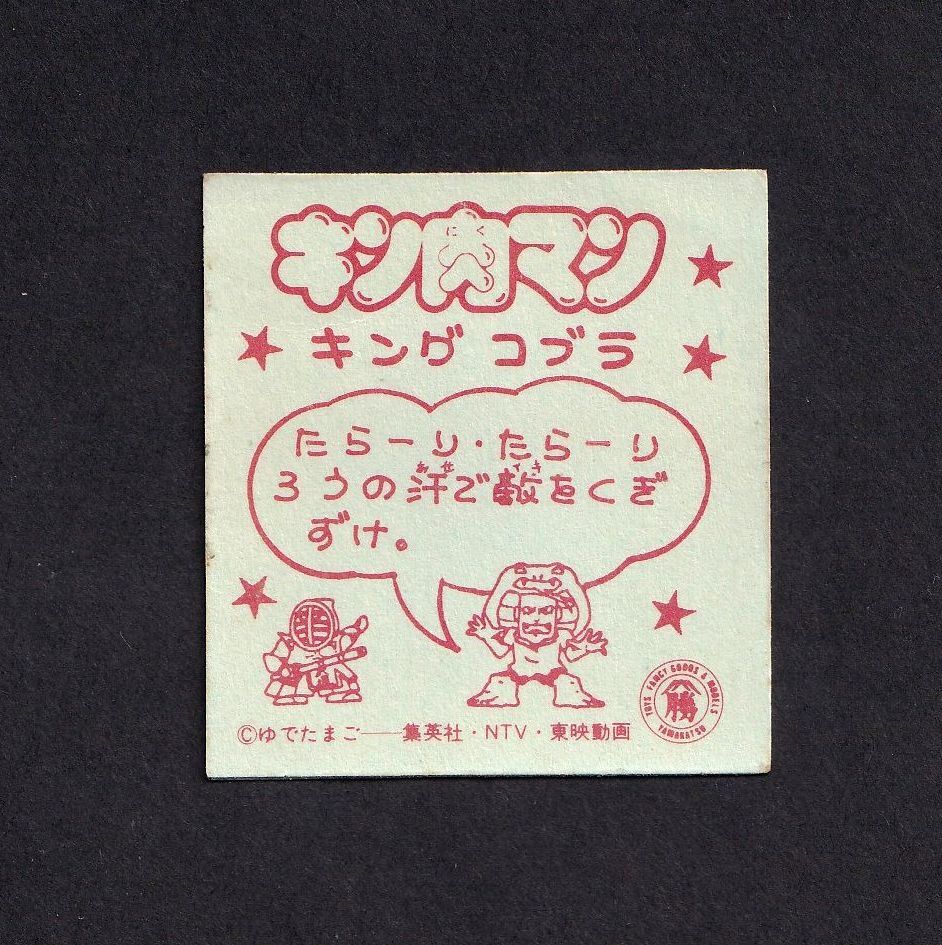 キン肉マン
にく
キング コブラ
たらーり・たらーり
ろうの汗で敵をくぎ
あせ
てき
ずけ。
©ゆでたまご──集英社・NTV・東映動画
TOYS FANCY GOODS & MODELS
勝
YAMAKATSU